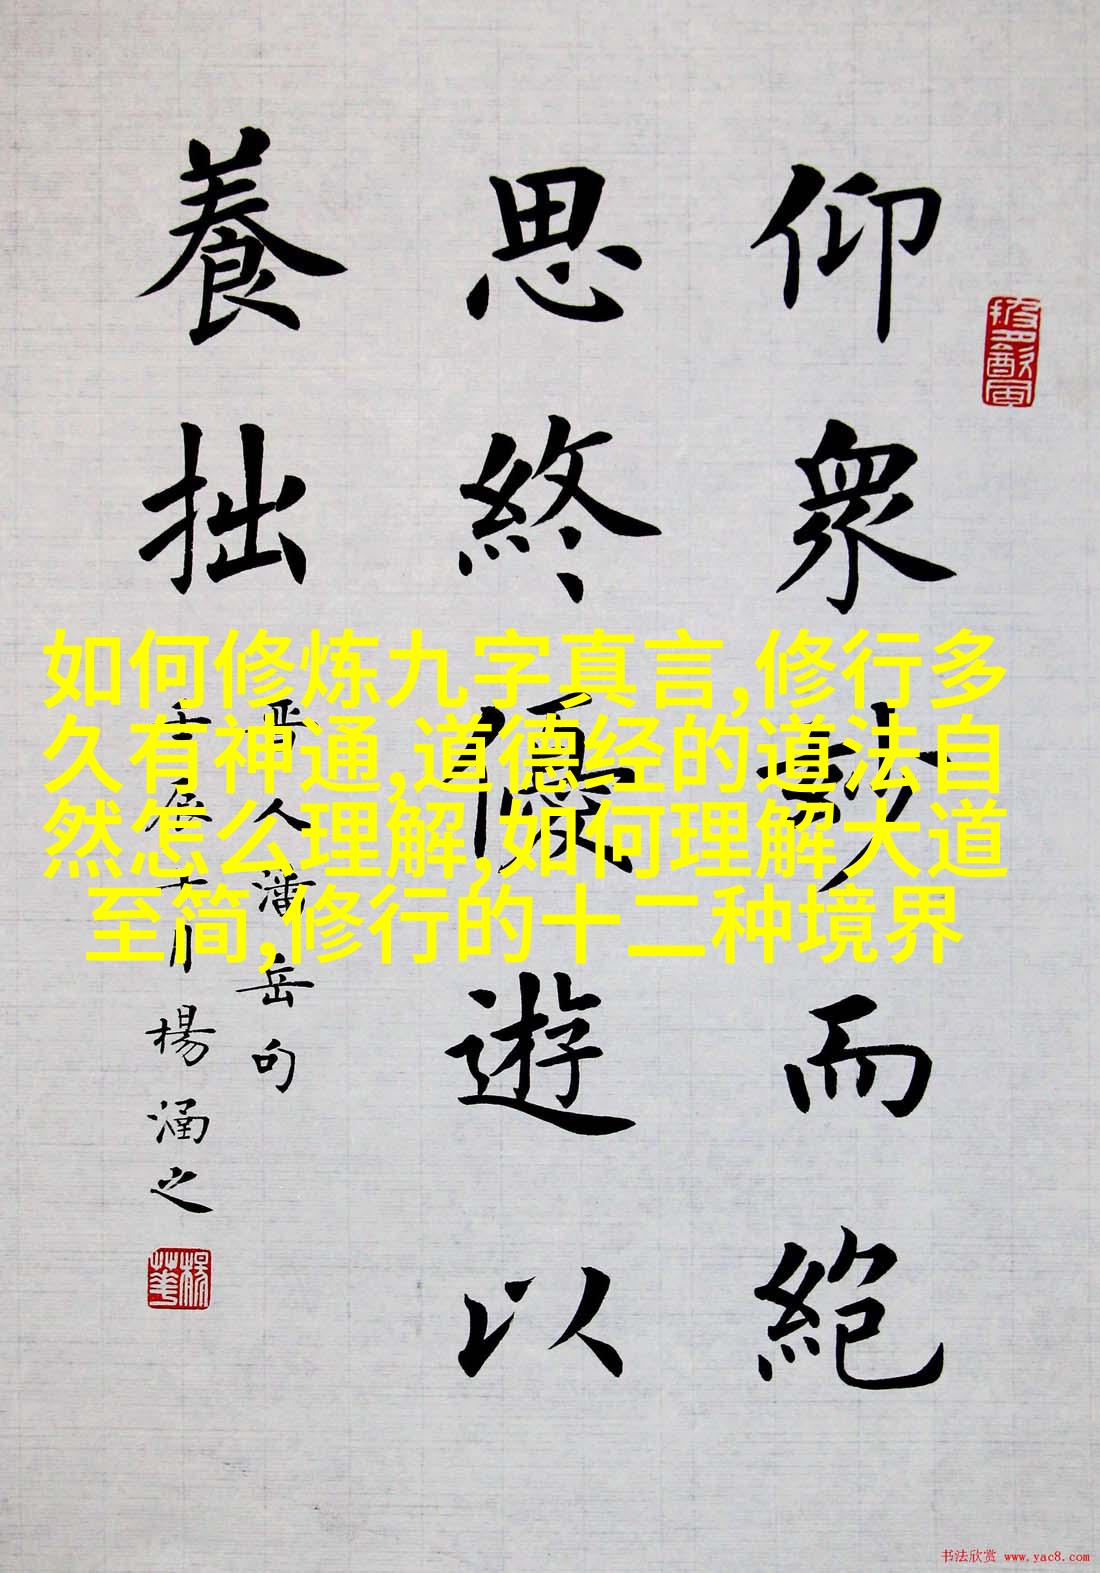 仰衆妙而絶
思終優遊以
養拙
晋人潘岳句
壬辰十月楊涵之
如何修炼九字真言,修行多
久有神通,道德经的道法自
然怎么理解,如何理解大道
至简,修行的十二种境界
书法欣赏 www.yac8.com